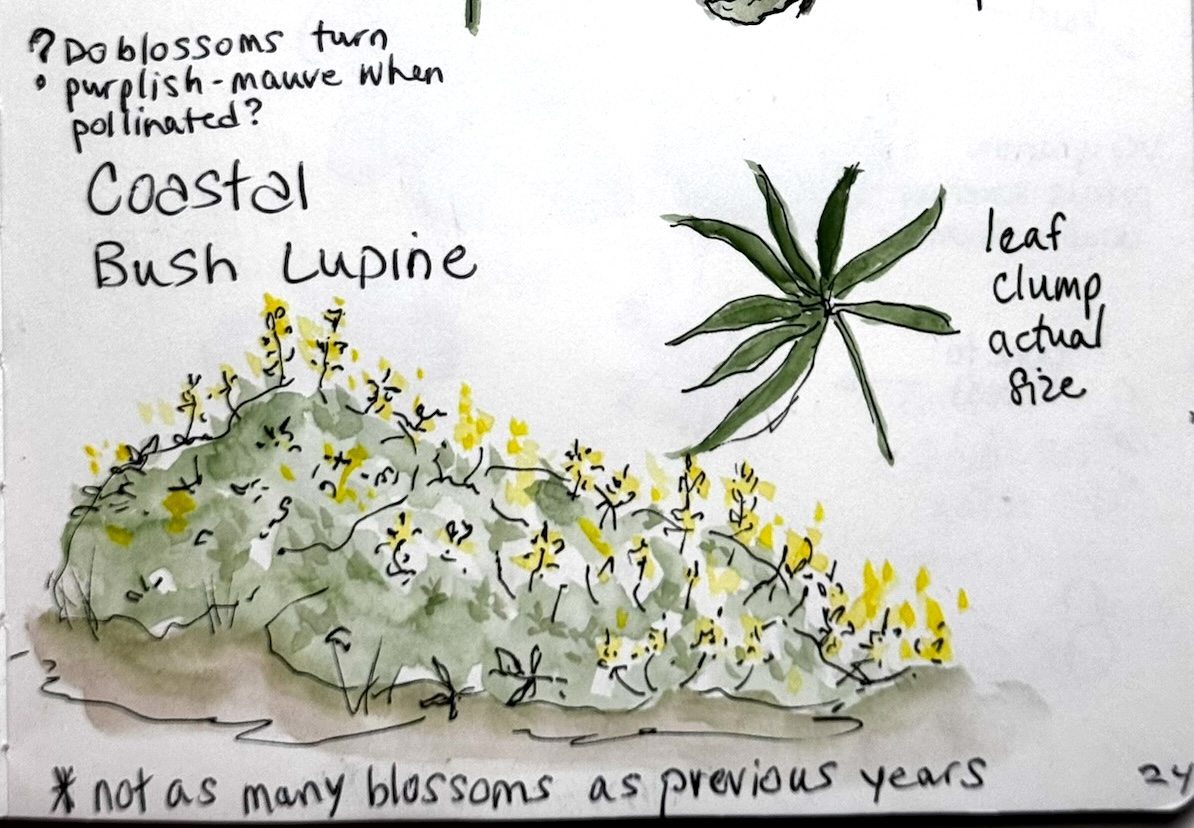 ? Do blossoms turn
purplish-mauve when
pollinated?
Coastal
Bush Lupine
leaf
clump
actual
size
* not as many blossoms as previous years
24